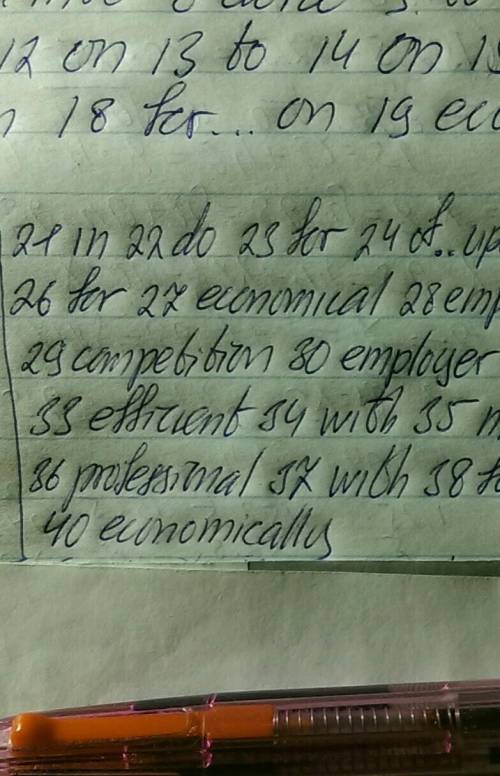 12 on 13 to 14 on
18 for... on 19
21 in 22 do 23 for 24 of.. up
26 for 27 economical 28 emp
29 competition 30 employer
33 efficient 34 with 35
36 professional 37 with 38
40 economically